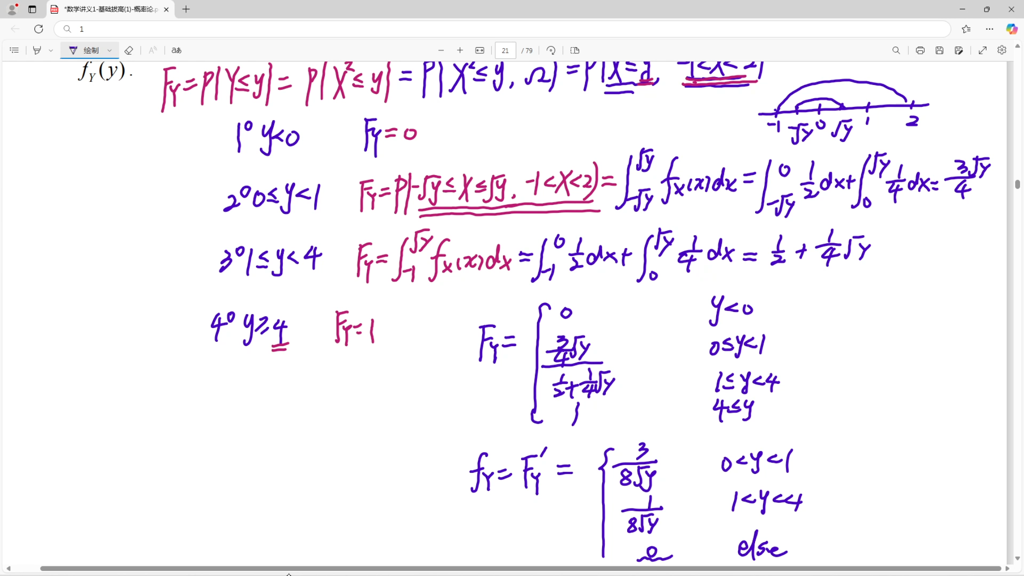 *数学讲义1-基础拔高(1)-概率论.p
1
绘制
21 / 79
f_Y(y).
F_Y=P{Y≤y}=P{X²≤y}=P{X²≤y, Ω}=P{
-1 -√y 0 √y 1 2
1° y<0 F_Y=0
2° 0≤y<1 F_Y=P{-√y≤X≤√y, -1<X<2}=∫_{-√y}^{√y} f_X(x)dx=∫_{-√y}^{0} 1/2 dx+∫_{0}^{√y} 1/4 dx=3√y/4
3° 1≤y<4 F_Y=∫_{-1}^{√y} f_X(x)dx=∫_{-1}^{0} 1/2 dx+∫_{0}^{√y} 1/4 dx=1/2+1/4√y
4° y≥4 F_Y=1
F_Y= { 0 y<0
3/4√y 0≤y<1
1/2+1/4√y 1≤y<4
1 4≤y
f_Y=F_Y'= { 3/(8√y) 0<y<1
1/(8√y) 1<y<4
0 else